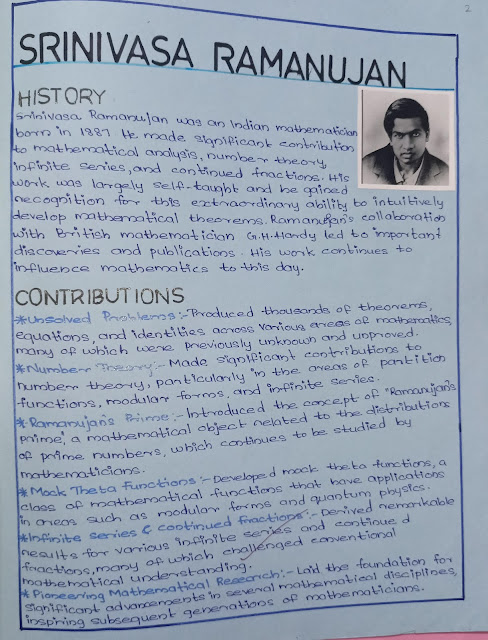 2
SRINIVASA RAMANUJAN
HISTORY
Srinivasa Ramanujan was an Indian mathematician
born in 1887 He made significant contribution
to mathematical analysis, number theory,
infinite series, and continued fractions. His
work was largely self-taught and he gained
recognition for this extraordinary ability to intuitively
develop mathematical theorems. Ramanujan's collaboration
with British mathematician G.H.Hardy led to important
discoveries and publications. His work continues to
influence mathematics to this day.
CONTRIBUTIONS
*Unsolved Problems:-Produced thousands of theorems,
equations, and identities across various areas of mathematics,
many of which were previously unknown and unproved.
*Number Theory:- Made significant contributions to
number theory, particularly in the areas of partition
functions, modular forms, and infinite series.
*Ramanujan's Prime:-Introduced the concept of "Ramanujan's
prime", a mathematical object related to the distributions
of prime numbers, which continues to be studied by
mathematicians.
*Mock Theta Functions:-Developed mock theta functions, a
class of mathematical functions that have applications
in areas such as modular forms and quantum physics.
*Infinite series & cootinued fractions:-Derived remarkable
results for various infinite series and continued
fractions, many of which challenged conventional
mathematical understanding.
*Pioneering Mathematical Research:- Laid the foundation for
significant advancements in several mathematical disciplines,
inspiring subsequent generations of mathematicians.